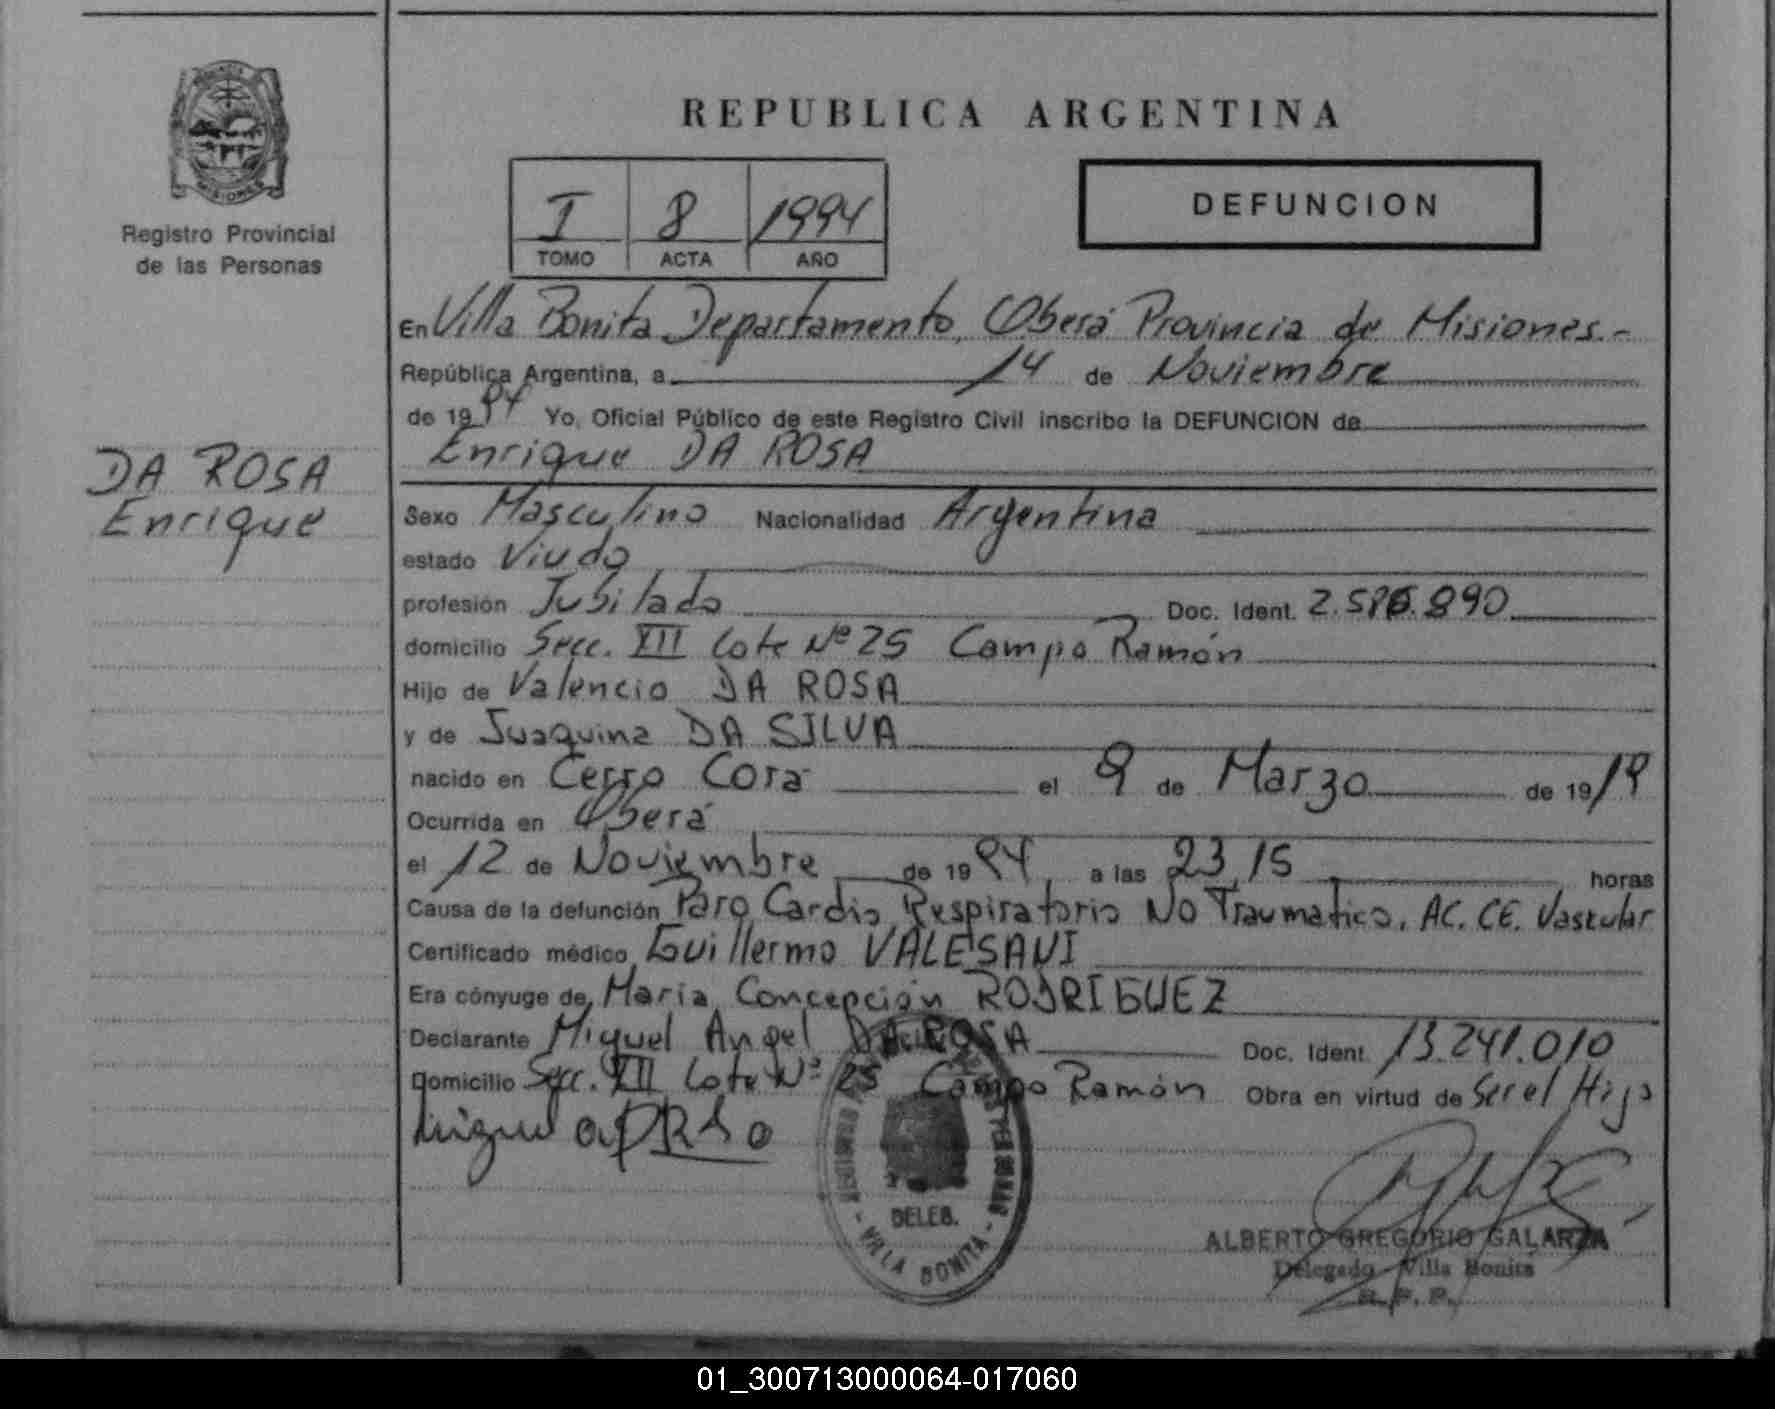 MISIONES
Registro Provincial
de las Personas
DA ROSA
Enrique
REPUBLICA ARGENTINA
I 8 1994
TOMO ACTA AÑO
DEFUNCION
En Villa Bonita Departamento, Oberá Provincia de Misiones.-
República Argentina, a 14 de Noviembre
de 1994 Yo, Oficial Público de este Registro Civil inscribo la DEFUNCION de
Enrique DA ROSA
Sexo Masculino Nacionalidad Argentina
estado Viudo
profesión Jubilado Doc. Ident. 2.586.890
domicilio Secc. XII Lote Nº 25 Campo Ramón
Hijo de Valencio DA ROSA
y de Juaquina DA SILVA
nacido en Cerro Cora el 9 de Marzo de 1919
Ocurrida en Oberá
el 12 de Noviembre de 1994 a las 23,15 horas
Causa de la defunción Paro Cardio Respiratorio No Traumatico. AC. CE. Vascular
Certificado médico Guillermo VALESANI
Era cónyuge de Maria Concepción RODRIGUEZ
Declarante Miguel Angel DA ROSA Doc. Ident. 13.241.010
Domicilio Secc. XII Lote Nº 25 Campo Ramón Obra en virtud de Ser el Hijo
DELEG.
VILLA BONITA
ALBERTO GREGORIO GALARZA
Delegado - Villa Bonita
R. P. P.
01_300713000064-017060